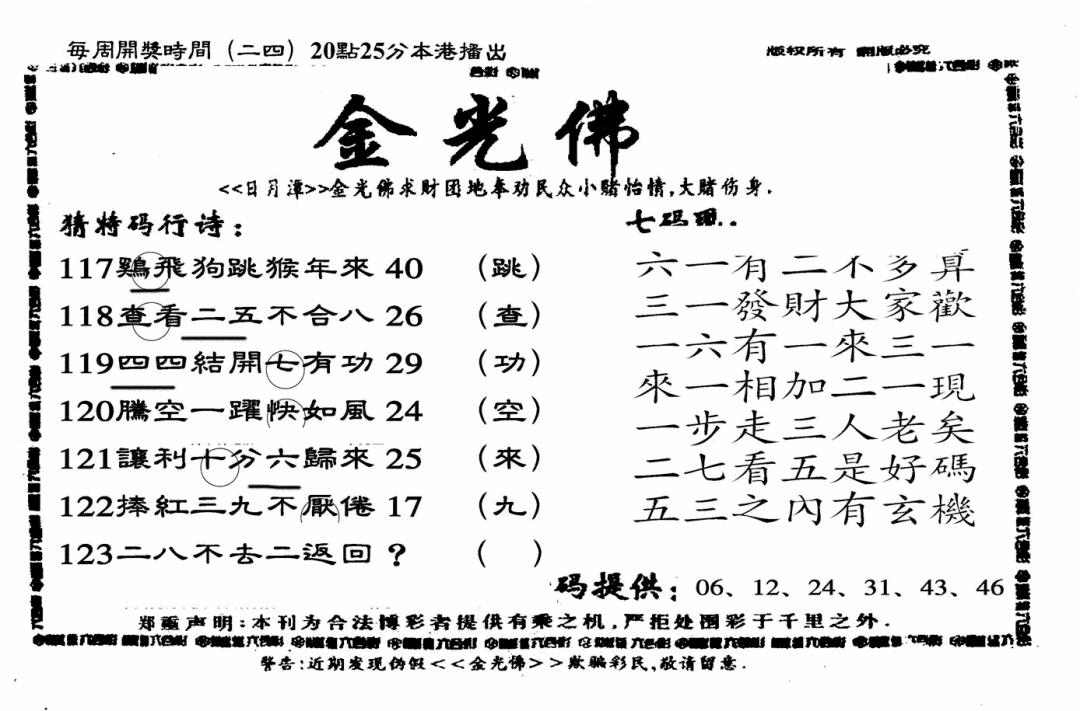 每周開獎時間（二四）20點25分本港播出
版权所有 翻版必究
金光佛
<<日月潭>>金光佛求财团地奉劝民众小赌怡情,大赌伤身.
猜特码行诗：
117鷄飛狗跳猴年來 40 （跳）
118查看二五不合八 26 （查）
119四四結開七有功 29 （功）
120騰空一躍快如風 24 （空）
121讓利十分六歸來 25 （來）
122捧紅三九不厭倦 17 （九）
123二八不去二返回？ （ ）
七码
六一有二不多算
三一發財大家歡
一六有一來三一
來一相加二一現
一步走三人老矣
二七看五是好碼
五三之內有玄機
码提供：06、12、24、31、43、46
郑重声明:本刊为合法博彩者提供有乘之机,严拒处图彩于千里之外.
警告:近期发现伪假<<金光佛>>欺骗彩民,敬请留意.